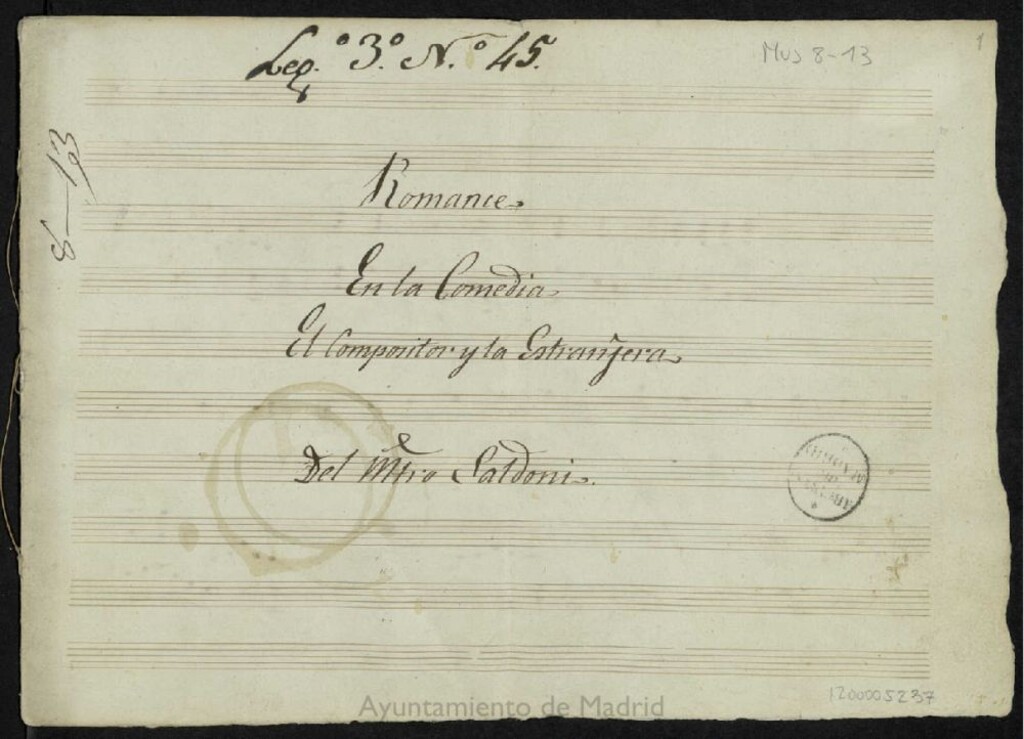 Leg.º 3.º N.º 45.
Mus 8-13
1
8-13
Romance
En la Comedia
El Compositor y la Estranjera
Del Mtro Saldoni.
1200005237
Ayuntamiento de Madrid